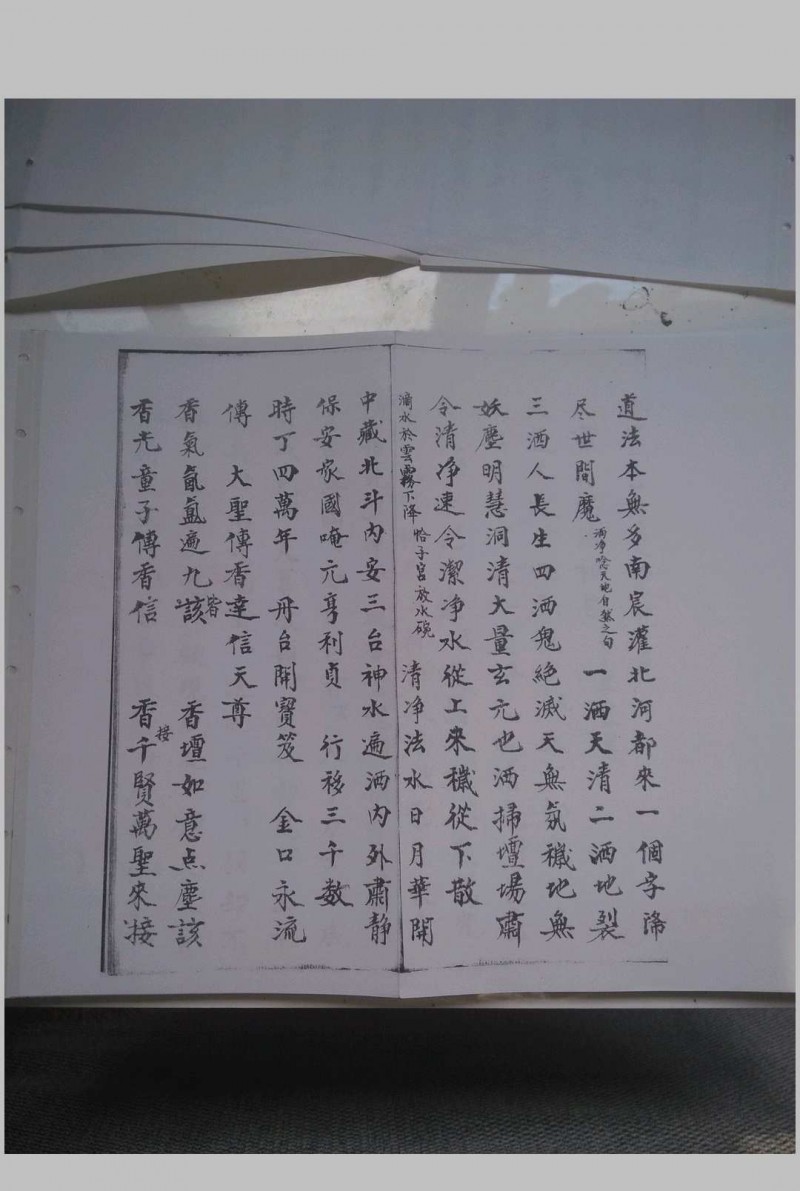 道法本無多南宸灌北河都來一個字降
尽世間魔 洒净唸天地自然之句 一洒天清二洒地裂
三洒人長生四洒鬼絕滅天無氛穢地無
妖塵明慧洞清大量玄元也洒掃壇場肅
令清净速令潔净水從上來穢從下散
滴水於雲霧下降 恰子宫放水碗 清净法水日月華開
中藏北斗内安三台神水遍洒内外肅静
保安家國唵元亨利貞 行移三千数
時丁四萬年 丹台開寶笈 金口永流
傳 大聖傳香達信天尊
香氣氤氳遍九該皆 香壇如意点塵該
香光童子傳香信 香接千賢萬聖來接